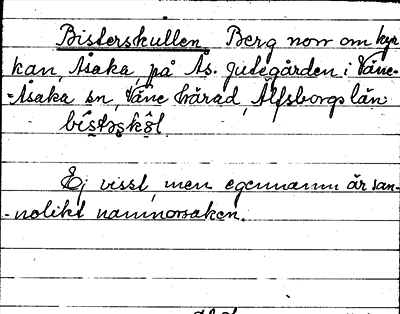 Bisterskullen Berg norr om kyr
kan, Åsaka, på Ås. Judegården i Väne-
-Åsaka sn, Väne härad, Älfsborgs län
Ej visst, men egennamn är san-
-nolikt namnorsaken.